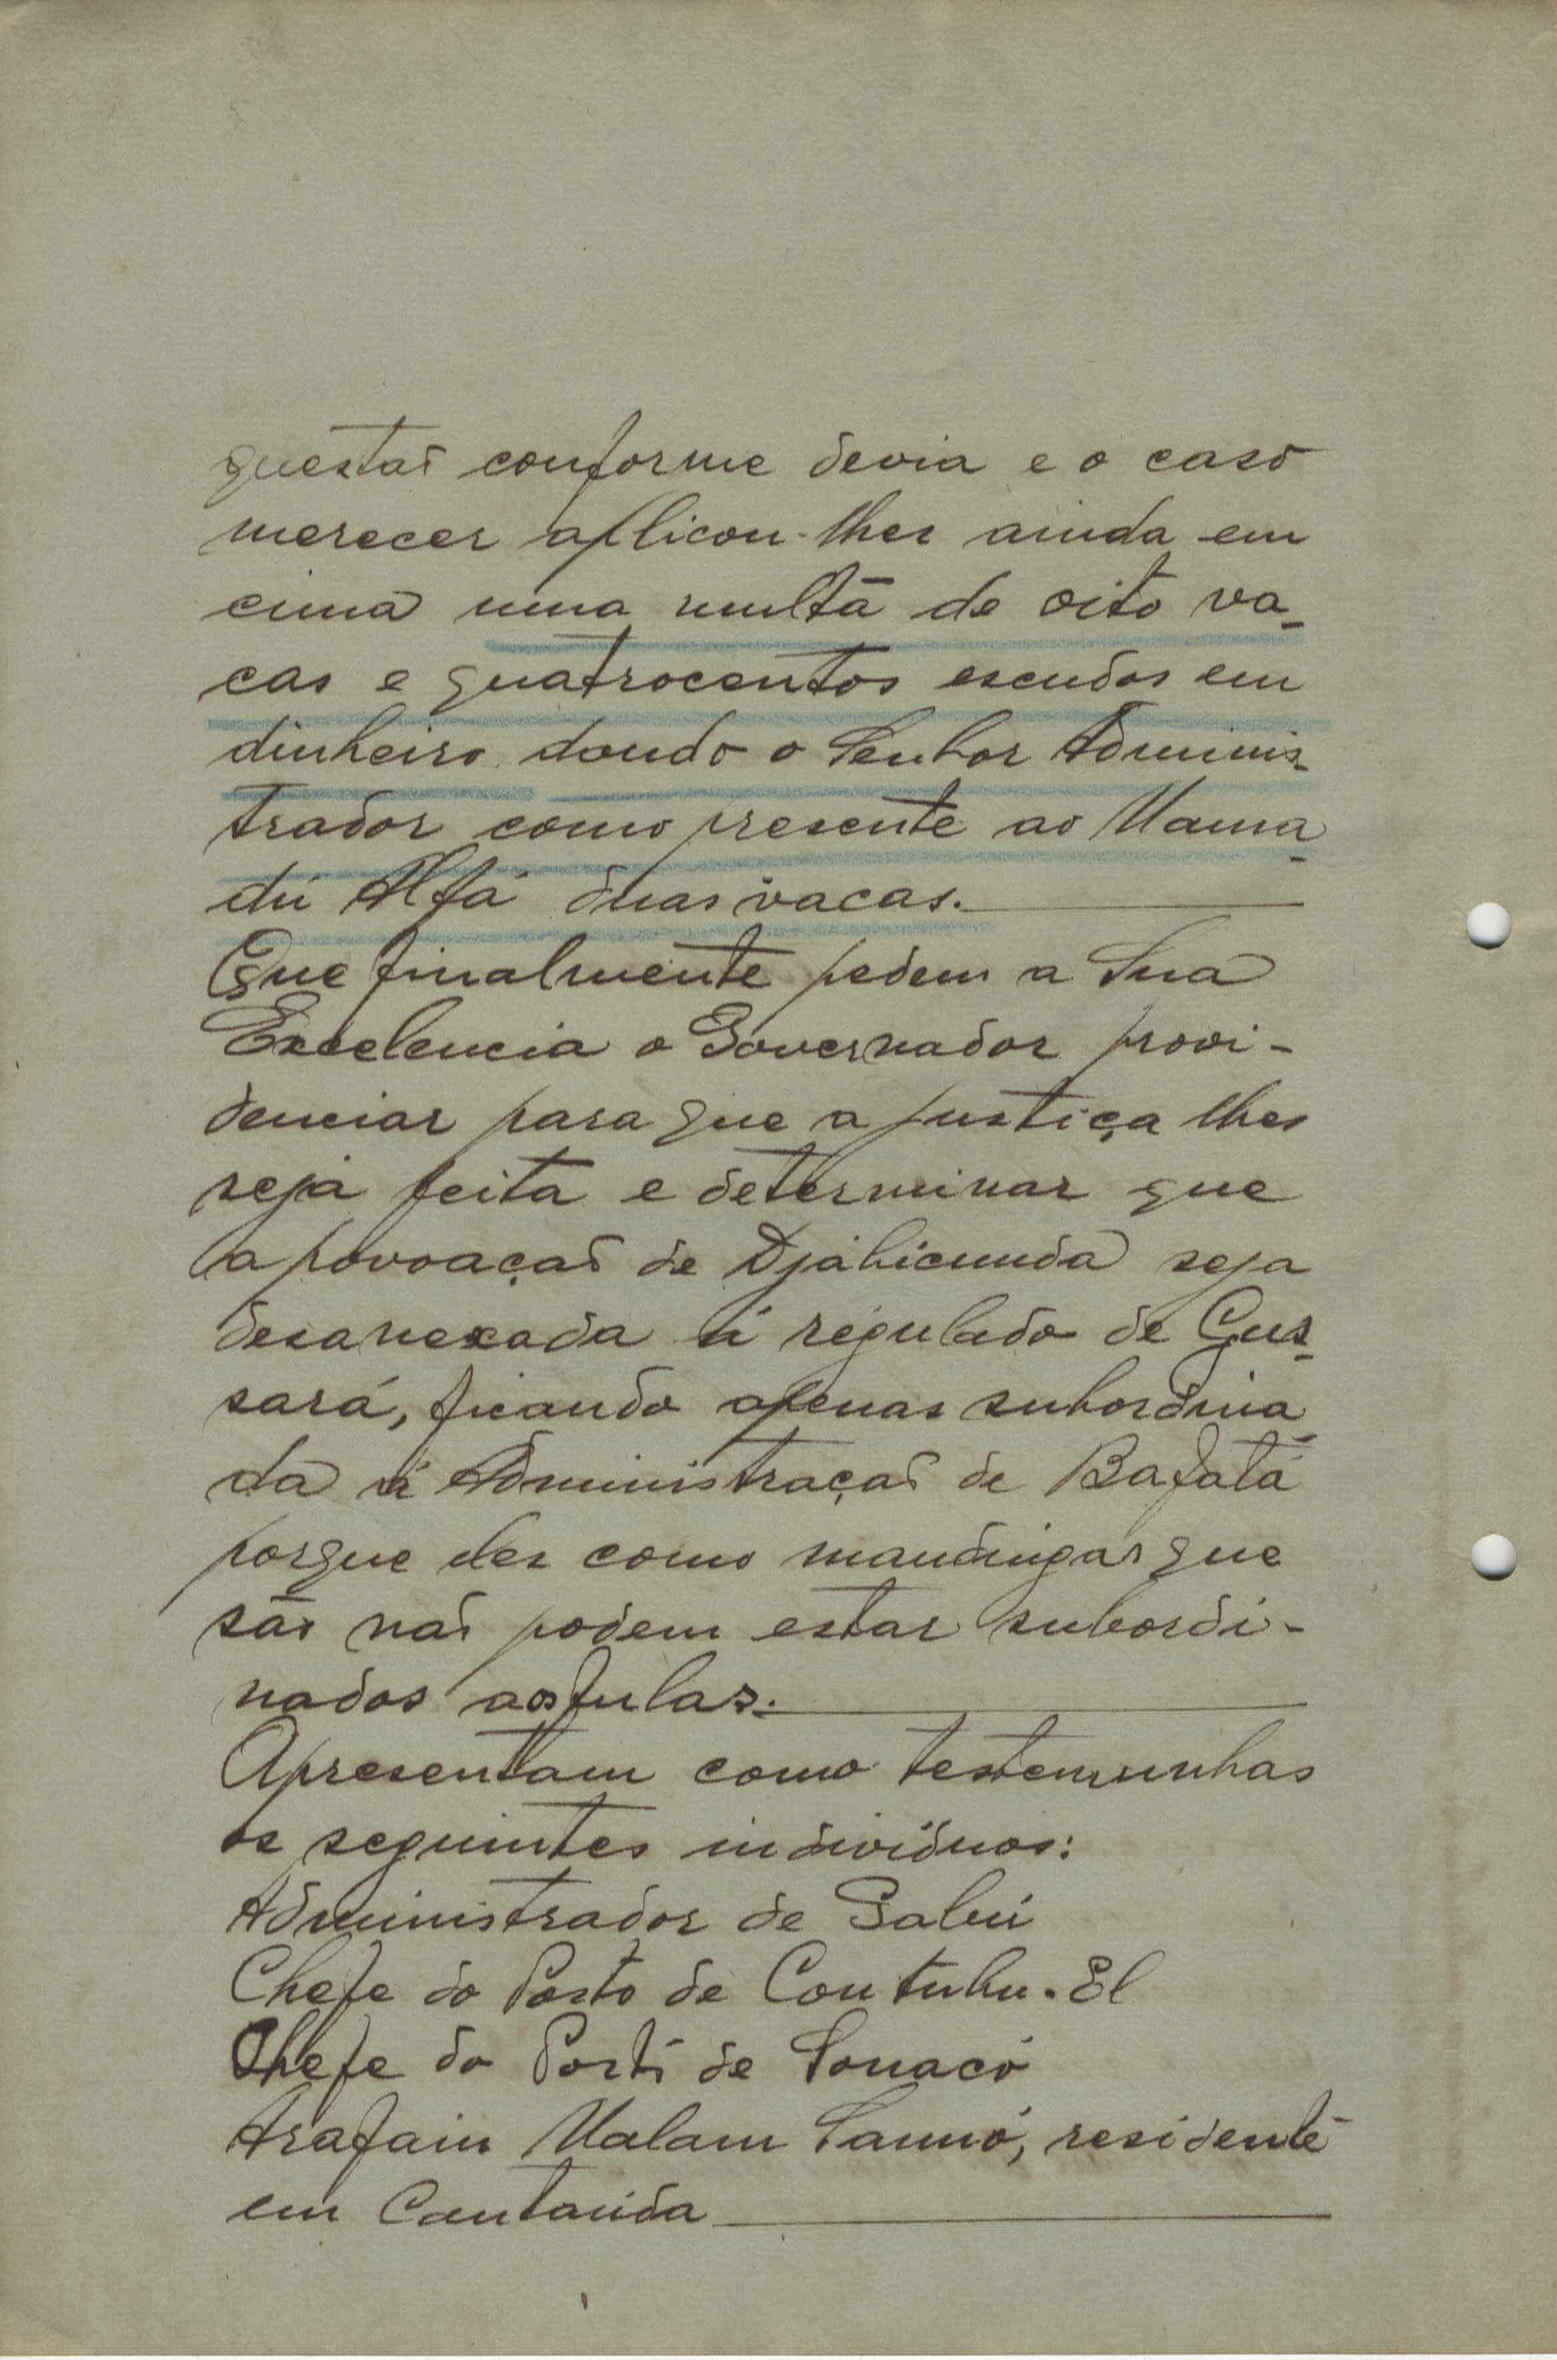 questaõ conforme devia e o caso
merecer aplicou-lhes ainda em
cima uma multa de oito va-
cas e quatrocentos escudos em
dinheiro dando o Senhor Adminis-
trador como presente ao Mama-
dú Alfá duas vacas.
Que finalmente pedem a Sua
Excelencia o Governador provi-
denciar para que a justiça lhes
seja feita e determinar que
a povoaçaõ de Djabicunda seja
desanexada á regulado de Gus-
sará, ficando apenas subordina-
da á Administraçaõ de Bafatá
porque eles como mandingas que
saõ naõ podem estar subordi-
nados aos fulas.
Apresentam como testemunhas
os seguintes individuos:
Administrador de Gabú
Chefe do Posto de Contubu-El
Chefe do Posto de Sonacó
Arafain Malam Sannó, residente
em Cantauda